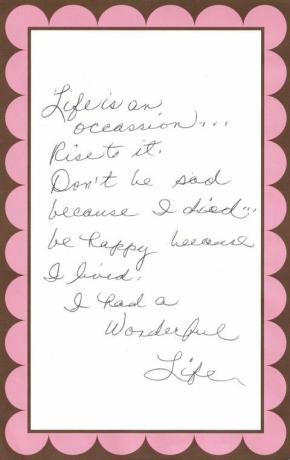 Life is an
occassion....
Rise to it.
Don't be sad
because I died...
be happy because
I lived.
I had a
Wonderful
Life